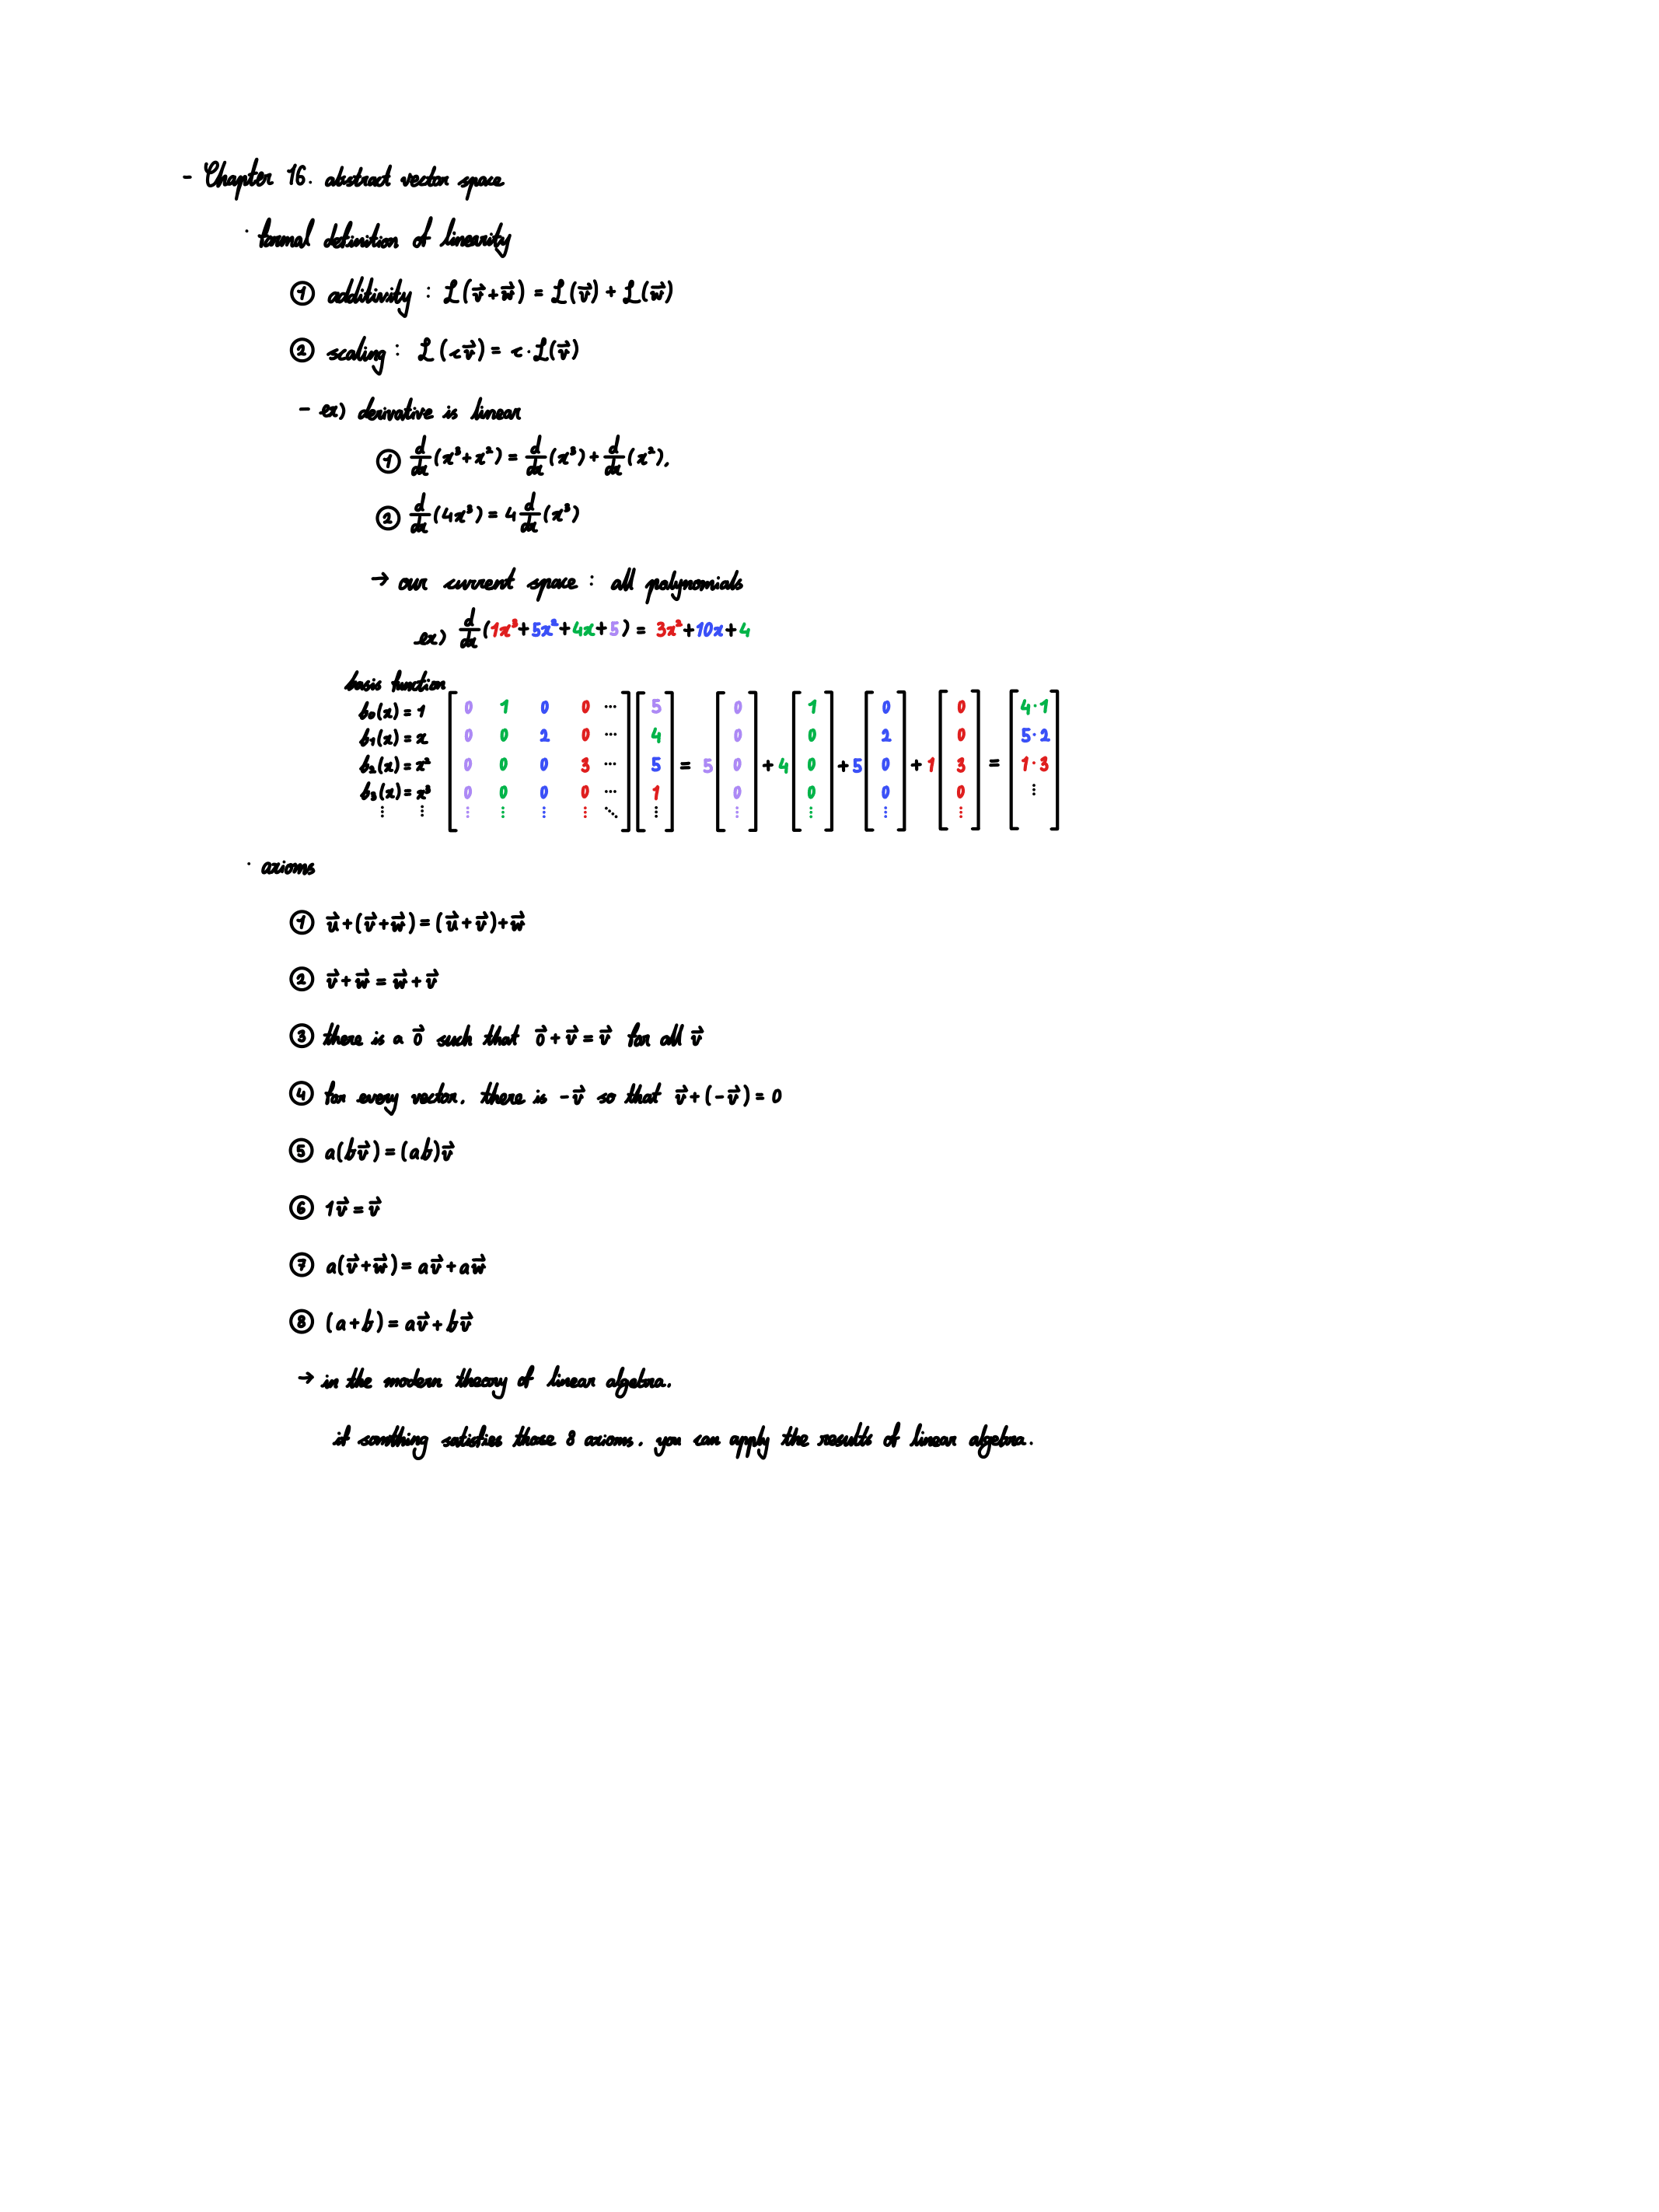 - Chapter 16. abstract vector space
· formal definition of linearity
① additivity : L(v⃗+w⃗) = L(v⃗) + L(w⃗)
② scaling : L(cv⃗) = c·L(v⃗)
- ex) derivative is linear
① d/dx(x³+x²) = d/dx(x³) + d/dx(x²),
② d/dx(4x³) = 4 d/dx(x³)
→ our current space : all polynomials
ex) d/dx(1x³+5x²+4x+5) = 3x²+10x+4
basis function
b₀(x) = 1 [ 0 1 0 0 ⋯ ] [ 5 ] [ 0 ] [ 1 ] [ 0 ] [ 0 ] [ 4·1 ]
b₁(x) = x [ 0 0 2 0 ⋯ ] [ 4 ] [ 0 ] [ 0 ] [ 2 ] [ 0 ] [ 5·2 ]
b₂(x) = x² [ 0 0 0 3 ⋯ ] [ 5 ] = 5 [ 0 ] + 4 [ 0 ] + 5 [ 0 ] + 1 [ 3 ] = [ 1·3 ]
b₃(x) = x³ [ 0 0 0 0 ⋯ ] [ 1 ] [ 0 ] [ 0 ] [ 0 ] [ 0 ] [ ⋮ ]
⋮ ⋮ [ ⋮ ⋮ ⋮ ⋮ ⋱ ] [ ⋮ ] [ ⋮ ] [ ⋮ ] [ ⋮ ] [ ⋮ ]
· axioms
① u⃗+(v⃗+w⃗) = (u⃗+v⃗)+w⃗
② v⃗+w⃗ = w⃗+v⃗
③ there is a 0⃗ such that 0⃗+v⃗ = v⃗ for all v⃗
④ for every vector, there is -v⃗ so that v⃗+(-v⃗) = 0
⑤ a(bv⃗) = (ab)v⃗
⑥ 1v⃗ = v⃗
⑦ a(v⃗+w⃗) = av⃗+aw⃗
⑧ (a+b) = av⃗+bv⃗
→ in the modern theory of linear algebra,
if somthing satisfies those 8 axioms, you can apply the results of linear algebra.